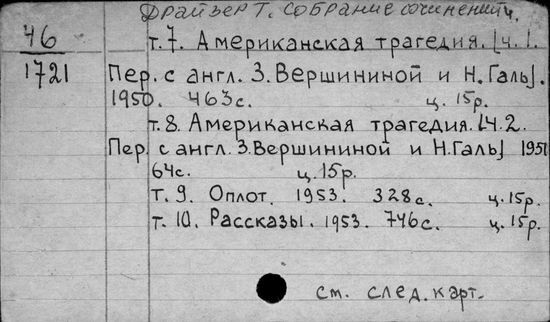 Драйзер Т. Собрание сочинений.
46
1721
т. 7. Американская трагедия. [ч. 1.
Пер. с англ. З. Вершининой и Н. Галь].
1950. 463с. ц. 15р.
т. 8. Американская трагедия. [ч. 2.
Пер. с англ. З. Вершининой и Н. Галь] 1951
64с. ц. 15р.
т. 9. Оплот. 1953. 328с. ц. 15р.
т. 10. Рассказы. 1953. 746с. ц. 15р.
см. след. карт.